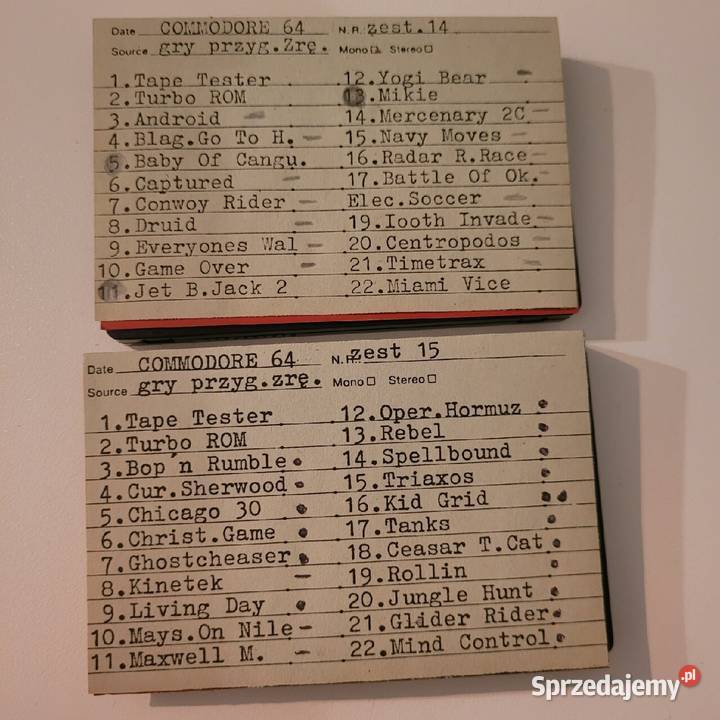 Date COMMODORE 64 N.R. zest.14
Source gry przyg.Zrę. Mono Stereo
1.Tape Tester
2.Turbo ROM
3.Android
4.Blag.Go To H.
5.Baby Of Cangu.
6.Captured
7.Conwoy Rider
8.Druid
9.Everyones Wal
10.Game Over
11.Jet B.Jack 2
12.Yogi Bear
13.Mikie
14.Mercenary 2C
15.Navy Moves
16.Radar R.Race
17.Battle Of Ok.
Elec.Soccer
19.Iooth Invade
20.Centropodos
21.Timetrax
22.Miami Vice
Date COMMODORE 64 N.R. zest 15
Source gry przyg.zrę. Mono Stereo
1.Tape Tester
2.Turbo ROM
3.Bop'n Rumble
4.Cur.Sherwood
5.Chicago 30
6.Christ.Game
7.Ghostcheaser
8.Kinetek
9.Living Day
10.Mays.On Nile
11.Maxwell M.
12.Oper.Hormuz
13.Rebel
14.Spellbound
15.Triaxos
16.Kid Grid
17.Tanks
18.Ceasar T.Cat
19.Rollin
20.Jungle Hunt
21.Glider Rider
22.Mind Control
Sprzedajemy.pl